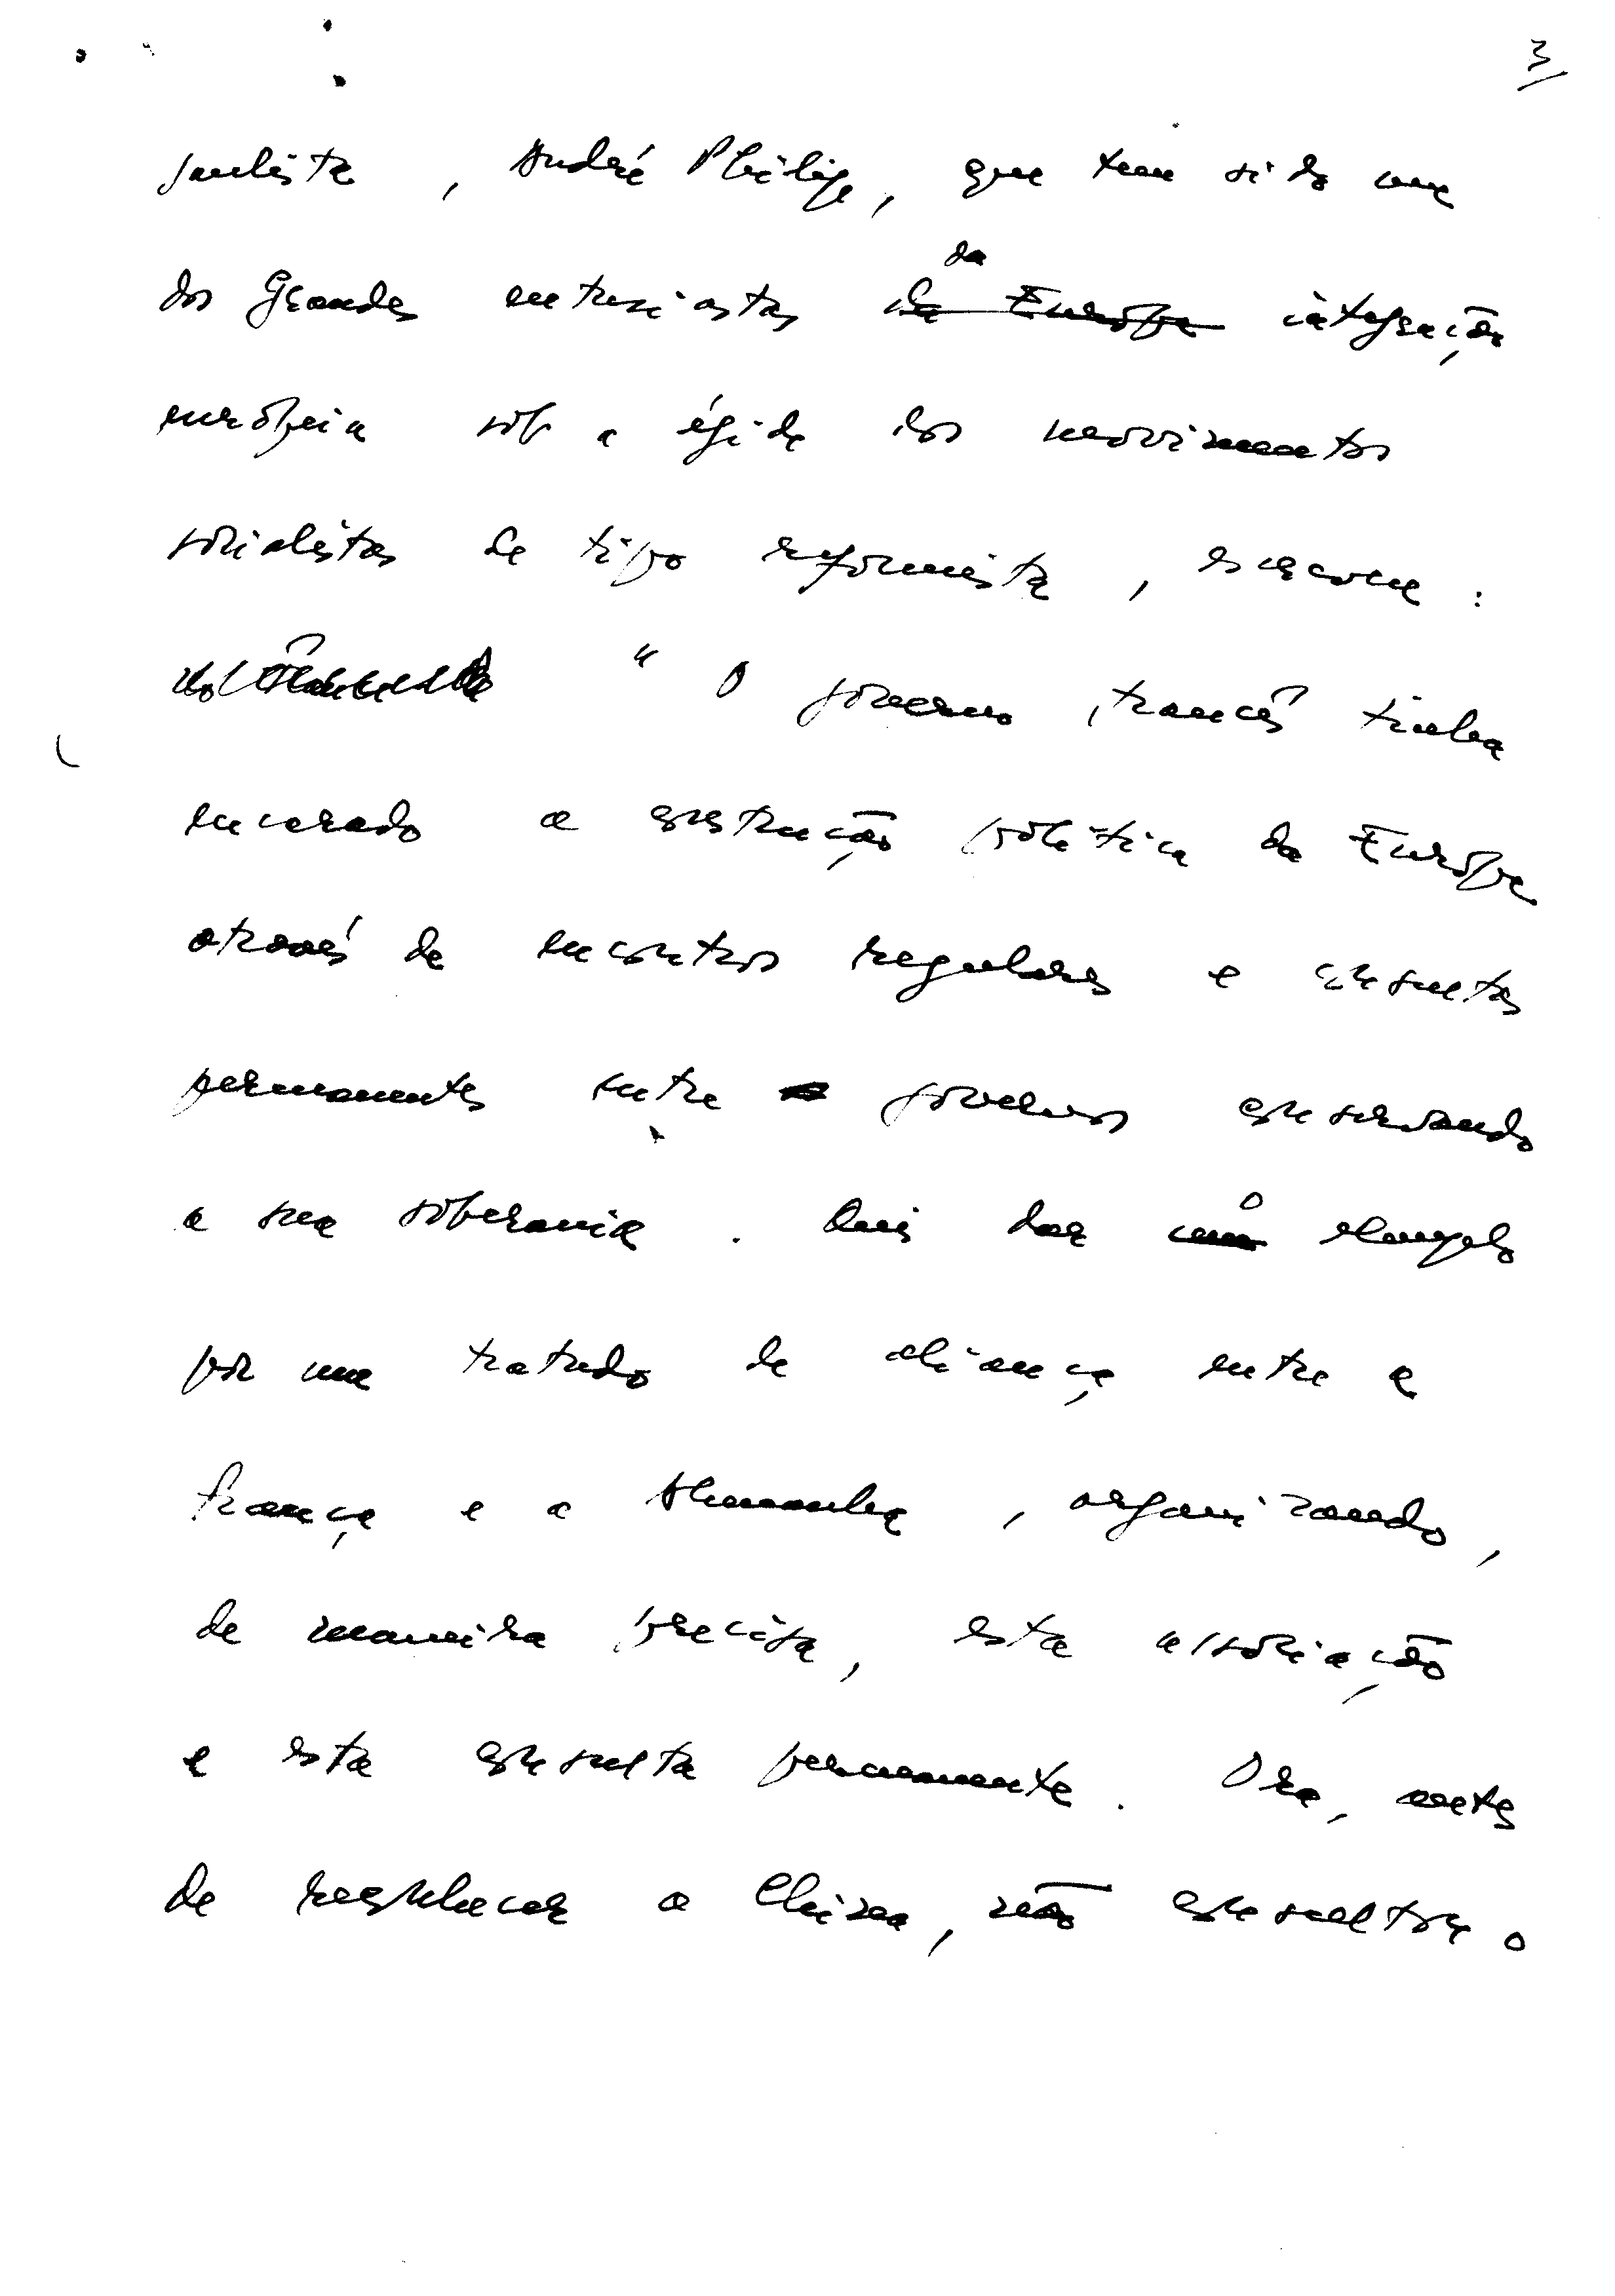 3
gaulista, André Philip, que tem sido um
dos Grandes entusiastas da Europa da integração
européia sob a égide dos movimentos
socialistas de tipo reformista, escreve:
" O governo francês tinha
encarado a construção política da Europa
através de encontros regulares e consultas
permanentes entre governos conservando
a sua soberania. Quis dar o exemplo
por um tratado de aliança entre a
França e a Alemanha, organizando,
de maneira precisa, esta associação
e esta consulta permanente. Ora, antes
de reconhecer a China, não consultou o